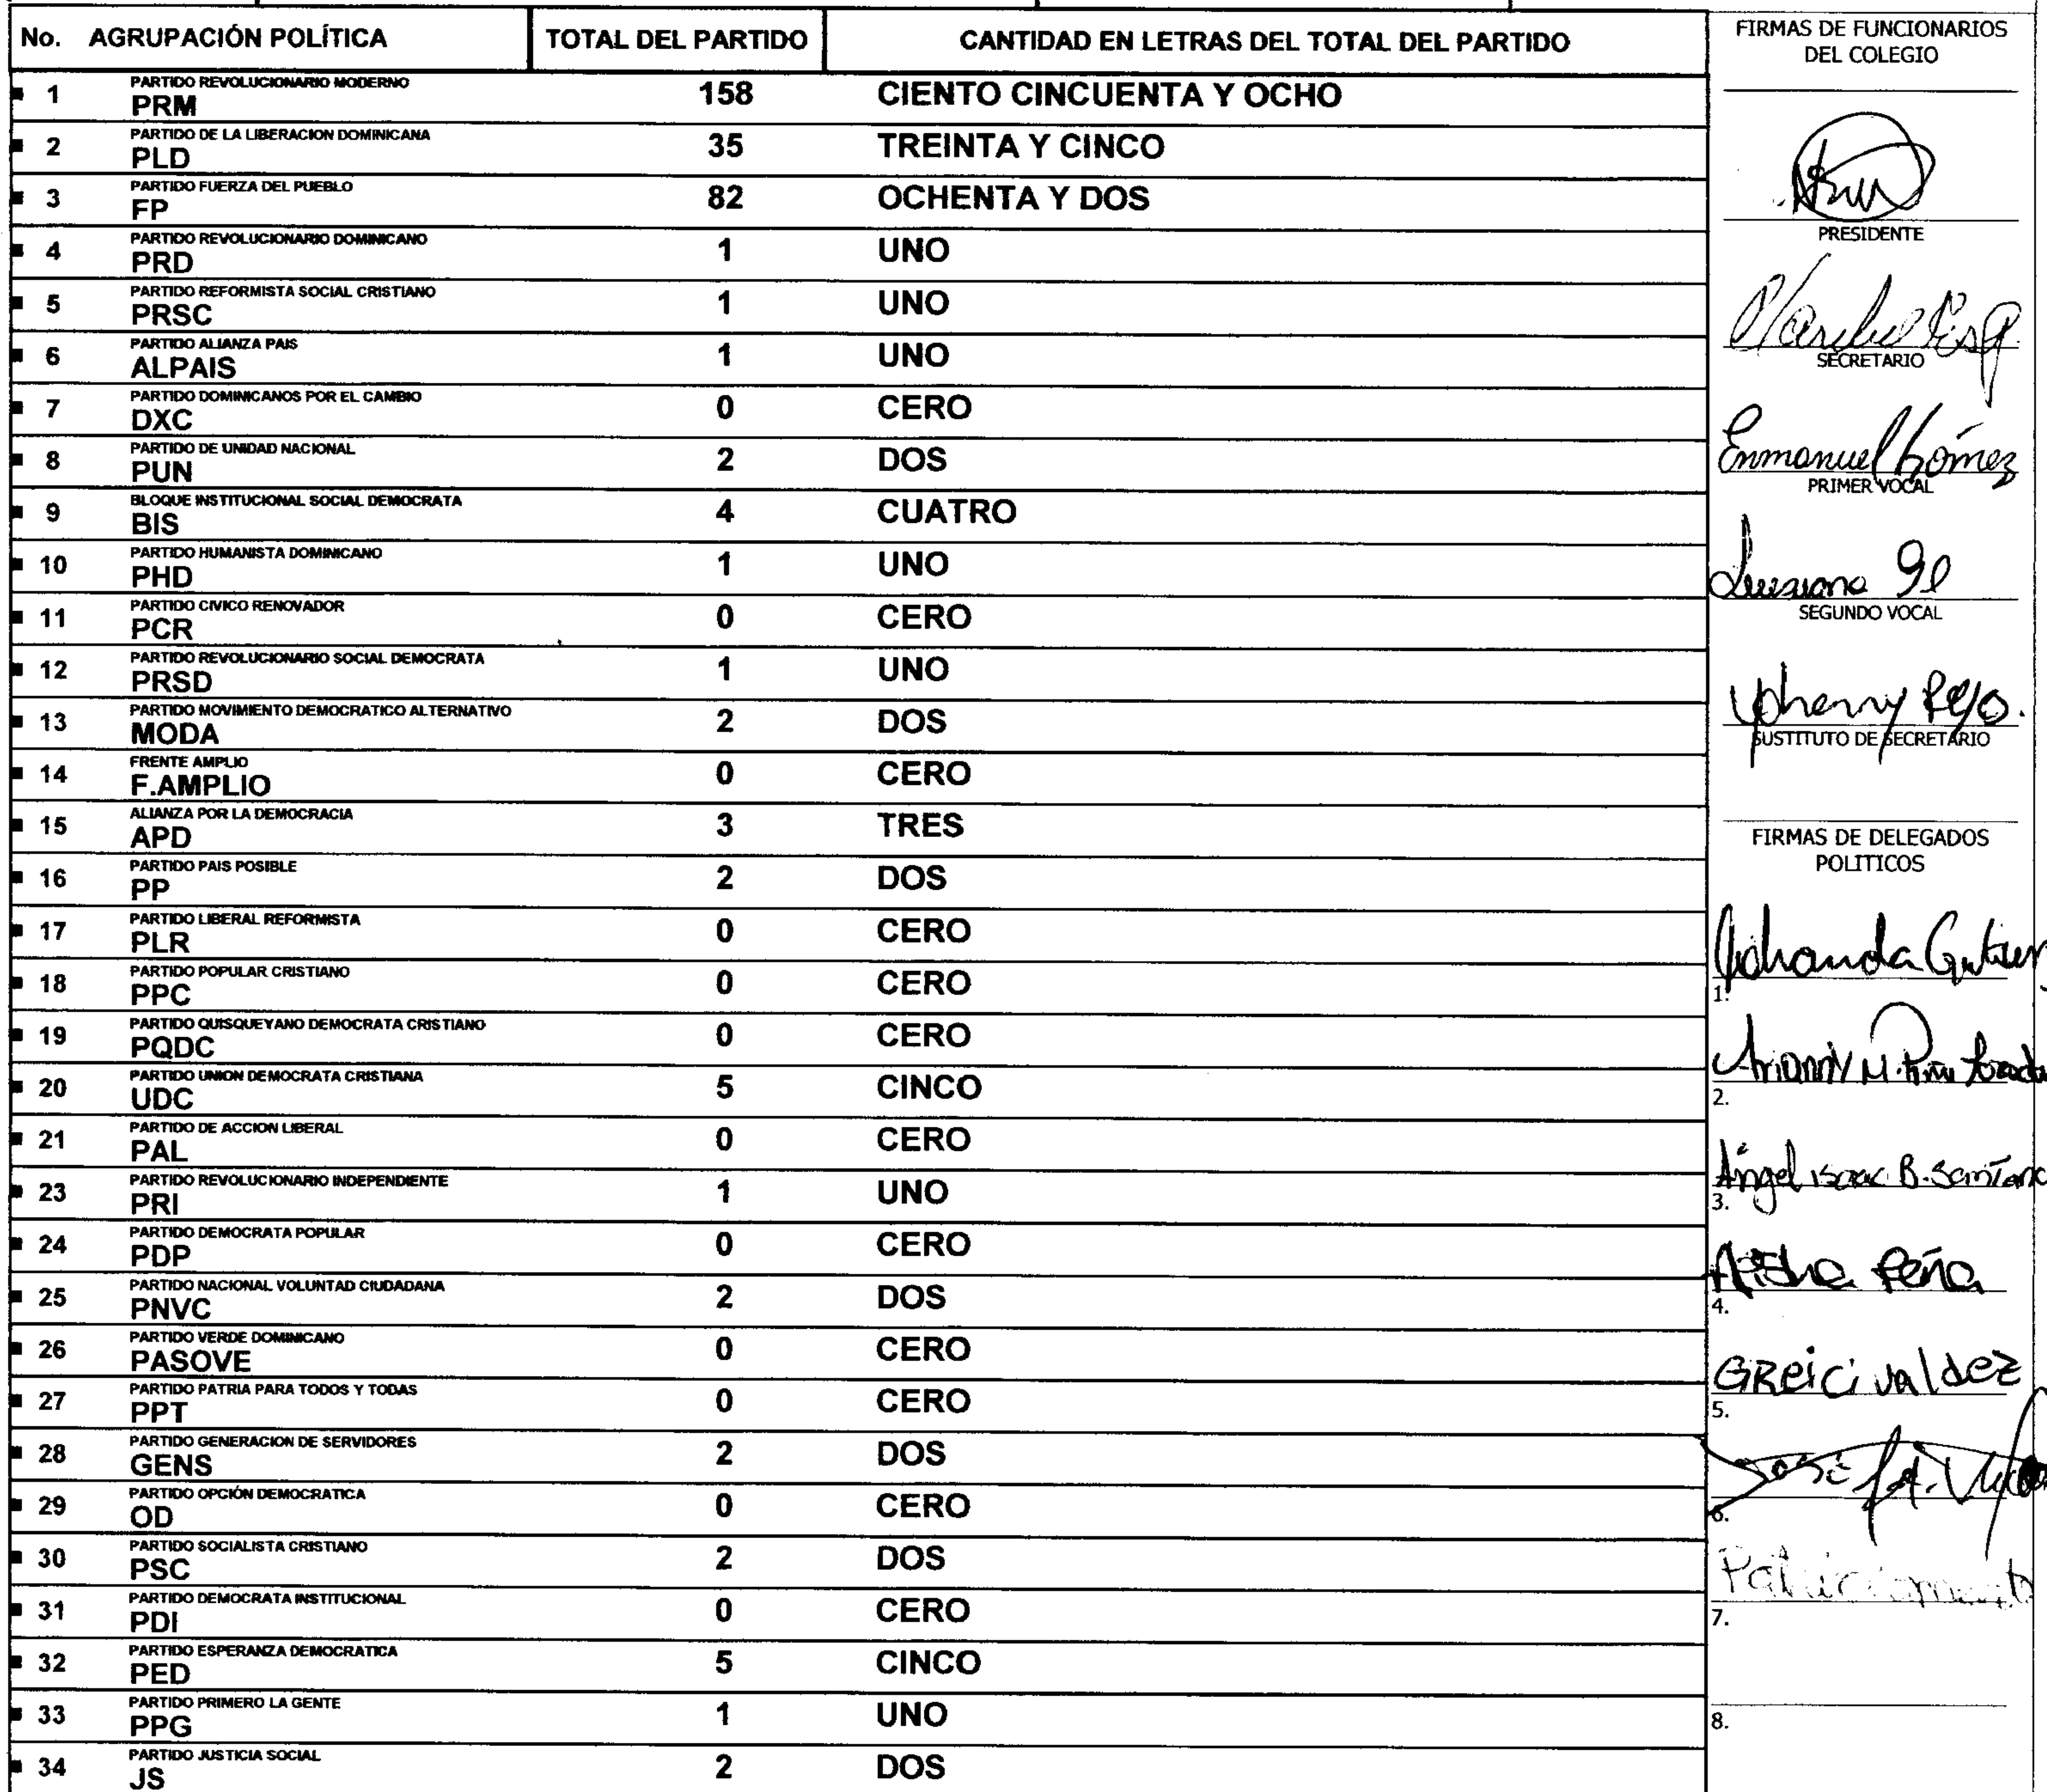 No. AGRUPACIÓN POLÍTICA TOTAL DEL PARTIDO CANTIDAD EN LETRAS DEL TOTAL DEL PARTIDO
PARTIDO REVOLUCIONARIO MODERNO
1 PRM 158 CIENTO CINCUENTA Y OCHO
PARTIDO DE LA LIBERACION DOMINICANA
2 PLD 35 TREINTA Y CINCO
PARTIDO FUERZA DEL PUEBLO
3 FP 82 OCHENTA Y DOS
PARTIDO REVOLUCIONARIO DOMINICANO
4 PRD 1 UNO
PARTIDO REFORMISTA SOCIAL CRISTIANO
5 PRSC 1 UNO
PARTIDO ALIANZA PAIS
6 ALPAIS 1 UNO
PARTIDO DOMINICANOS POR EL CAMBIO
7 DXC 0 CERO
PARTIDO DE UNIDAD NACIONAL
8 PUN 2 DOS
BLOQUE INSTITUCIONAL SOCIAL DEMOCRATA
9 BIS 4 CUATRO
PARTIDO HUMANISTA DOMINICANO
10 PHD 1 UNO
PARTIDO CIVICO RENOVADOR
11 PCR 0 CERO
PARTIDO REVOLUCIONARIO SOCIAL DEMOCRATA
12 PRSD 1 UNO
PARTIDO MOVIMIENTO DEMOCRATICO ALTERNATIVO
13 MODA 2 DOS
FRENTE AMPLIO
14 F.AMPLIO 0 CERO
ALIANZA POR LA DEMOCRACIA
15 APD 3 TRES
PARTIDO PAIS POSIBLE
16 PP 2 DOS
PARTIDO LIBERAL REFORMISTA
17 PLR 0 CERO
PARTIDO POPULAR CRISTIANO
18 PPC 0 CERO
PARTIDO QUISQUEYANO DEMOCRATA CRISTIANO
19 PQDC 0 CERO
PARTIDO UNION DEMOCRATA CRISTIANA
20 UDC 5 CINCO
PARTIDO DE ACCION LIBERAL
21 PAL 0 CERO
PARTIDO REVOLUCIONARIO INDEPENDIENTE
23 PRI 1 UNO
PARTIDO DEMOCRATA POPULAR
24 PDP 0 CERO
PARTIDO NACIONAL VOLUNTAD CIUDADANA
25 PNVC 2 DOS
PARTIDO VERDE DOMINICANO
26 PASOVE 0 CERO
PARTIDO PATRIA PARA TODOS Y TODAS
27 PPT 0 CERO
PARTIDO GENERACION DE SERVIDORES
28 GENS 2 DOS
PARTIDO OPCIÓN DEMOCRATICA
29 OD 0 CERO
PARTIDO SOCIALISTA CRISTIANO
30 PSC 2 DOS
PARTIDO DEMOCRATA INSTITUCIONAL
31 PDI 0 CERO
PARTIDO ESPERANZA DEMOCRATICA
32 PED 5 CINCO
PARTIDO PRIMERO LA GENTE
33 PPG 1 UNO
PARTIDO JUSTICIA SOCIAL
34 JS 2 DOS
FIRMAS DE FUNCIONARIOS
DEL COLEGIO
PRESIDENTE
SECRETARIO
Enmanuel Gómez
PRIMER VOCAL
SEGUNDO VOCAL
SUSTITUTO DE SECRETARIO
FIRMAS DE DELEGADOS
POLITICOS
1.
2.
Ángel isaac B. Santana
3.
Peña
4.
GReici valdez
5.
JOSÉ
6.
7.
8.